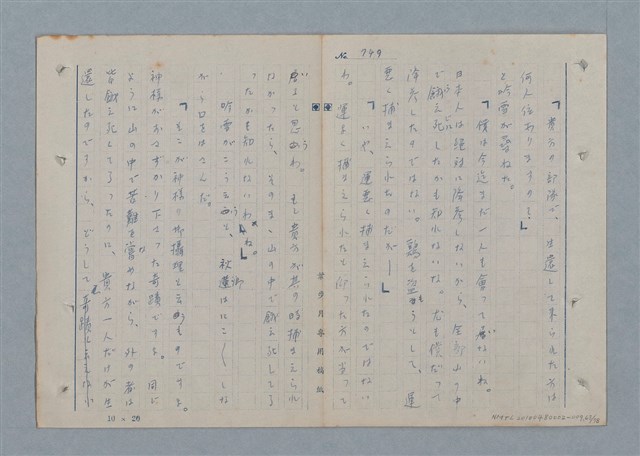 No. 749
「貴方の部隊で、生還して来られた方は
何人位ありますの？」
と吟雪が尋ねた。
「僕は今迄まだ一人も会って居ないね。
日本人は絶対に降参しないから、全部山の中
で餓え死したかも知れないな。尤も僕だって
降参したのではない。鶏を盗もうとして、運
悪く捕まえられたのだが──」
「いや、運悪く捕まえられたのではない
わ。運よく捕まえられたと仰った方が当って
居ると思うわ。もし貴方が其の時捕まえられ
なかったら、そのまゝ山の中で餓え死してる
ったかも知れないわね。」
吟雪がこう云うと、秋蓮はにこ〳〵しな
がら口をはさんだ。
「そこが神様の御攝理と云うものですよ。
神様がおあずかり下さった奇蹟ですよ。同じ
ように山の中で苦難を嘗めながら、外の者は
皆餓え死してしまったのに、貴方一人だけが生
還したのですから、どうして奇蹟と云えない
葉歩月専用稿紙
10×20